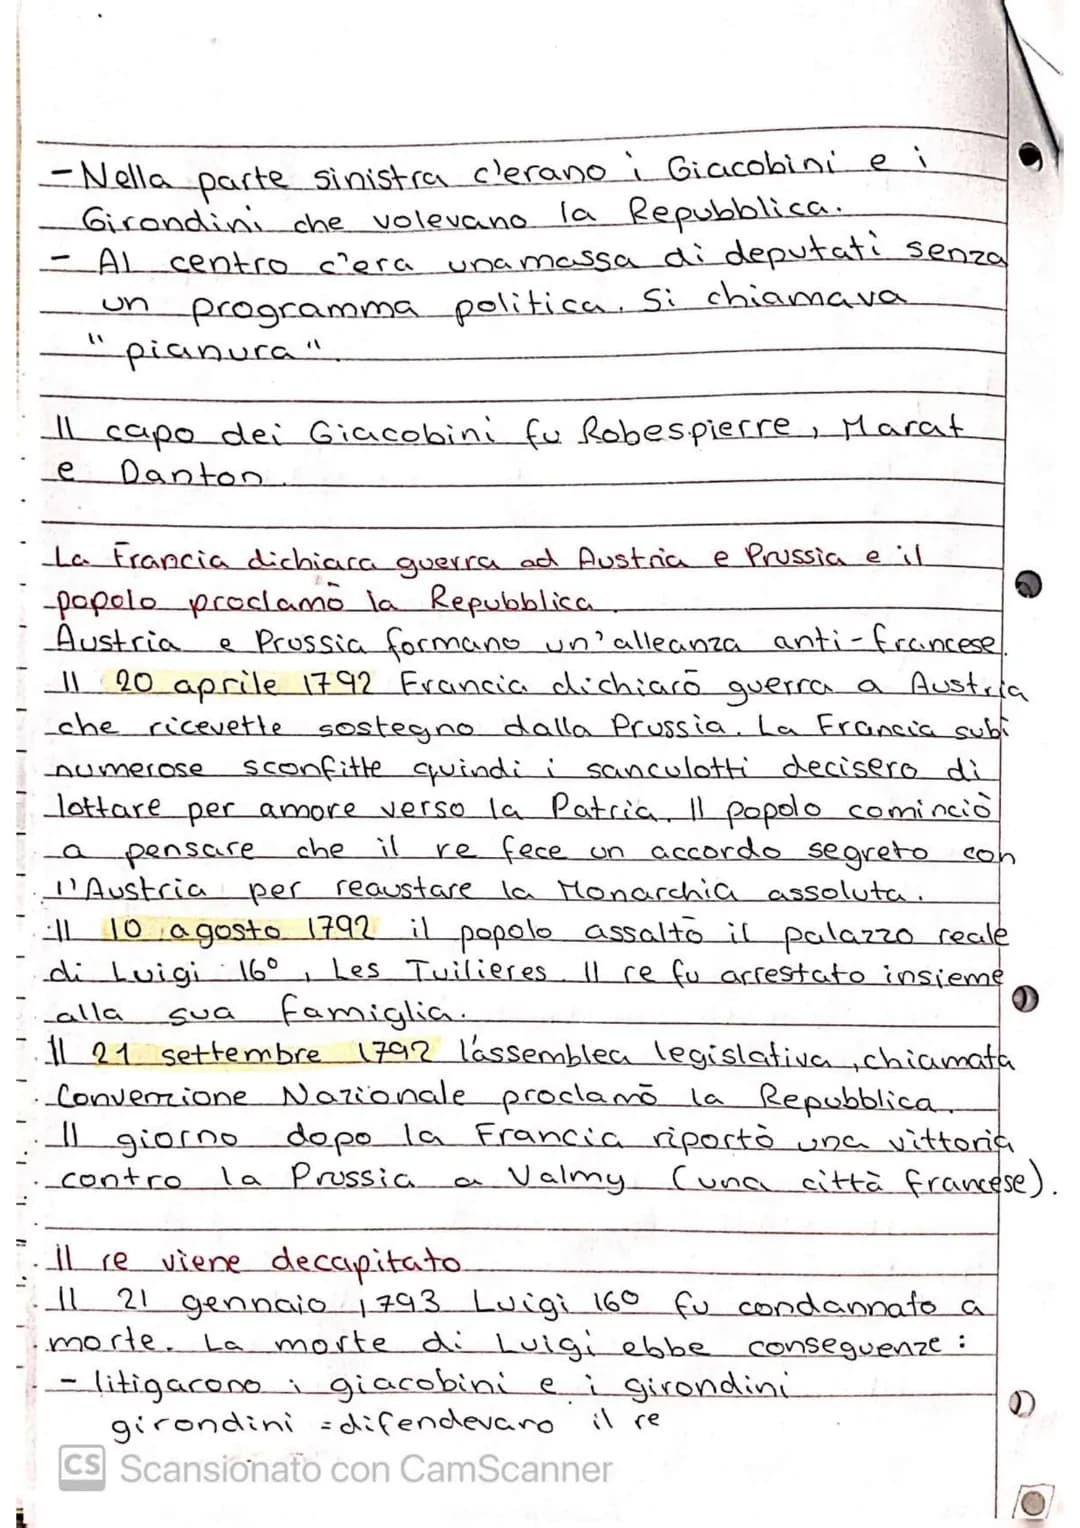 - Nella parte sinistra c'erano i Giacobini e i
Girondini che volevano la Repubblica.
- Al centro c'era una massa di deputati senza
un programma politica. Si chiamava
"pianura".
Il capo dei Giacobini fu Robespierre, Marat
e Danton.
La Francia dichiara guerra ad Austria e Prussia e il
popolo proclamò la Repubblica.
Austria e Prussia formano un'alleanza anti-francese.
Il 20 aprile 1792 Francia dichiarò guerra a Austria
che ricevette sostegno dalla Prussia. La Francia subì
numerose sconfitte quindi i sanculotti decisero di
lottare per amore verso la Patria. Il popolo cominciò
a pensare che il re fece un accordo segreto con
l'Austria per reaustare la Monarchia assoluta.
Il 10 agosto 1792 il popolo assaltò il palazzo reale
di Luigi 16°, Les Tuilieres. Il re fu arrestato insieme
alla sua famiglia.
Il 21 settembre 1792 l'assemblea legislativa, chiamata
Convenzione Nazionale proclamò la Repubblica.
Il giorno dopo la Francia riportò una vittoria
contro la Prussia a Valmy (una città francese).
Il re viene decapitato
Il 21 gennaio 1793 Luigi 16° fu condannato a
morte. La morte di Luigi ebbe conseguenze:
- litigarono i giacobini e i girondini
girondini = difendevano il re
CS Scansionato con CamScanner